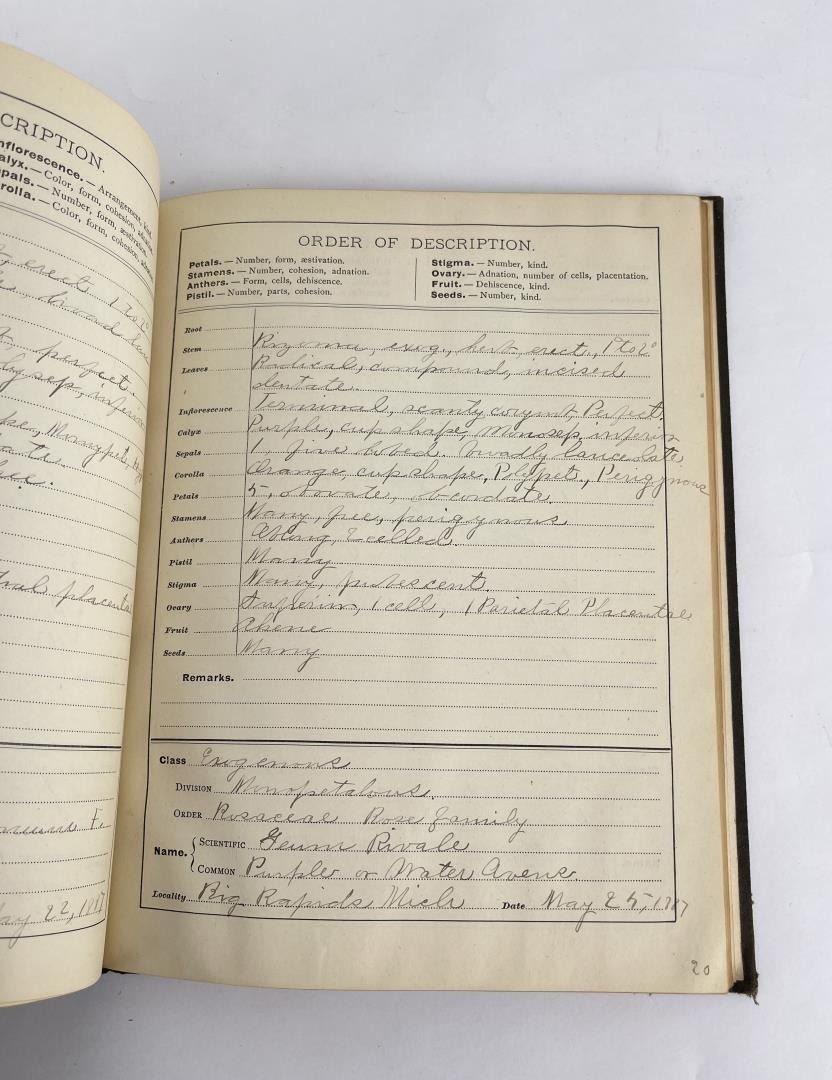 CRIPTION.
nflorescence.—Arrangement, kind.
alyx.—Color, form, cohesion, adnation.
pals.—Number, form, æstivation.
rolla.—Color, form, cohesion, adnation.
erect 1 to 2°
broad
perfect.
sep, inferior
Monopet,
placenta
May 22, 1887
ORDER OF DESCRIPTION.
Petals.—Number, form, æstivation.
Stamens.—Number, cohesion, adnation.
Anthers.—Form, cells, dehiscence.
Pistil.—Number, parts, cohesion.
Stigma.—Number, kind.
Ovary.—Adnation, number of cells, placentation.
Fruit.—Dehiscence, kind.
Seeds.—Number, kind.
Root
Stem Rizoma, exog., herb. erect., 1° to 2°
Leaves Radical, compound, incised
dentate.
Inflorescence Terminal, scanty corymb, Perfect.
Calyx Purple, cup shape, Monosep. inferior
Sepals 1, five lobed. Broadly lanceolate,
Corolla Orange, cup shape, Polypet., Perigynous
Petals 5, obovate, obcordate.
Stamens Many, free, perigynous
Anthers Oblong, 2 celled.
Pistil Many
Stigma Many, pubescent.
Ovary Superior, 1 cell, 1 Parietal Placentae
Fruit Akene
Seeds Many
Remarks.
Class Exogenous
Division Monopetalous.
Order Rosaceae Rose family
Name. Scientific Geum Rivale
Common Purple or Water Avens.
Locality Big Rapids Mich Date May 25, 1887
20